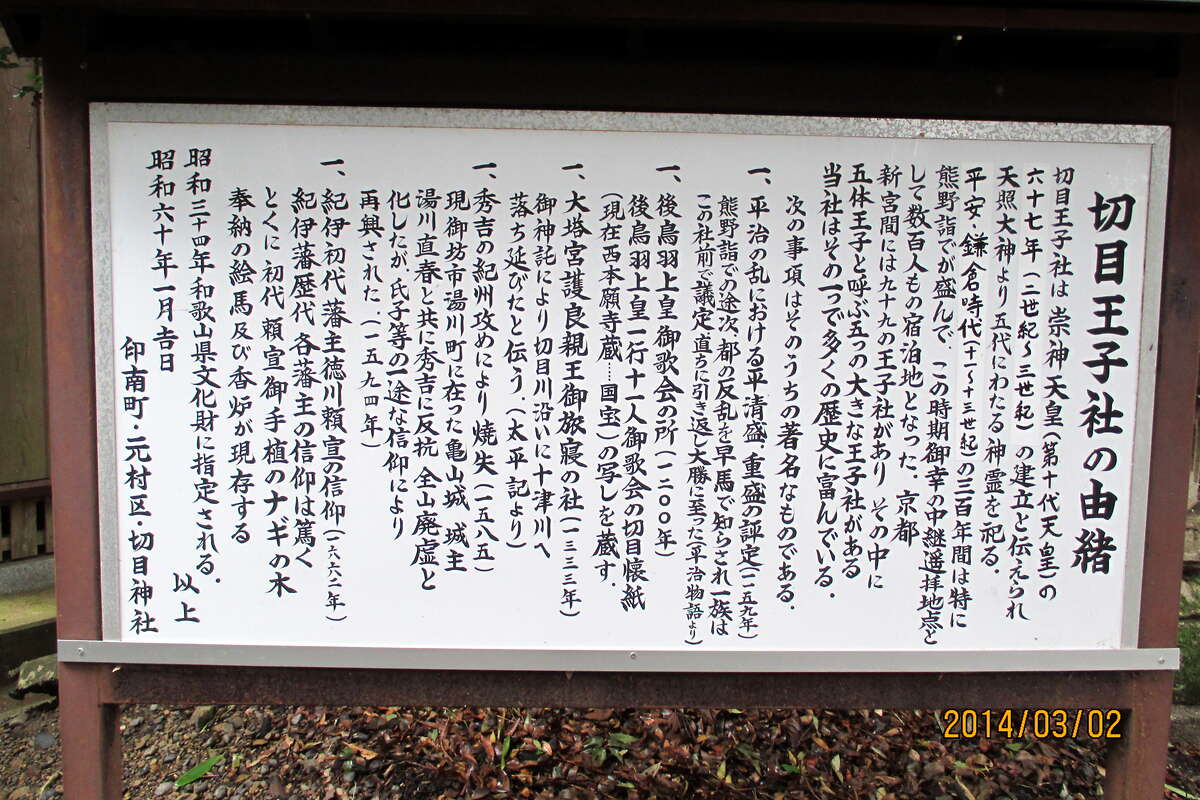 切目王子社の由緒
切目王子社は崇神天皇(第十代天皇)の
六十七年(二世紀〜三世紀)の建立と伝えられ
天照大神より五代にわたる神霊を祀る。
平安・鎌倉時代(十一〜十三世紀)の三百年間は特に
熊野詣でが盛んで、この時期御幸の中継遥拝地点と
して数百人もの宿泊地となった。京都
新宮間には九十九の王子社があり その中に
五体王子と呼ぶ五つの大きな王子社がある
当社はその一つで多くの歴史に富んでいる.
次の事項はそのうちの著名なものである.
一、平治の乱における平清盛.重盛の評定(一一五九年)
熊野詣での途次都の反乱を早馬で知らされ一族は
この社前で議定直ちに引き返し大勝に至った(平治物語より)
一、後鳥羽上皇御歌会の所(一二〇〇年)
後鳥羽上皇一行十一人御歌会の切目懐紙
(現在西本願寺蔵……国宝)の写しを蔵す.
一、大塔宮護良親王御旅寝の社(一三三三年)
御神託により切目川沿いに十津川へ
落ち延びたと伝う.(太平記より)
一、秀吉の紀州攻めにより焼失(一五八五)
現御坊市湯川町に在った亀山城 城主
湯川直春と共に秀吉に反抗 全山廃虚と
化したが、氏子等の一途な信仰により
再興された.(一五九四年)
一、紀伊初代藩主徳川頼宣の信仰(一六六二年)
紀伊藩歴代 各藩主の信仰は篤く
とくに初代 頼宣御手植のナギの木
奉納の絵馬及び香炉が現存する
昭和三十四年和歌山県文化財に指定される.
以上
昭和六十年一月吉日
印南町・元村区・切目神社
2014/03/02